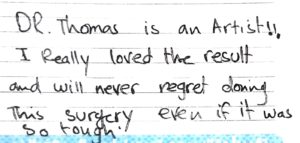 DR. Thomas is an Artist!!
I Really loved the result
and will never regret doning
This surgery even if it was
so tough!